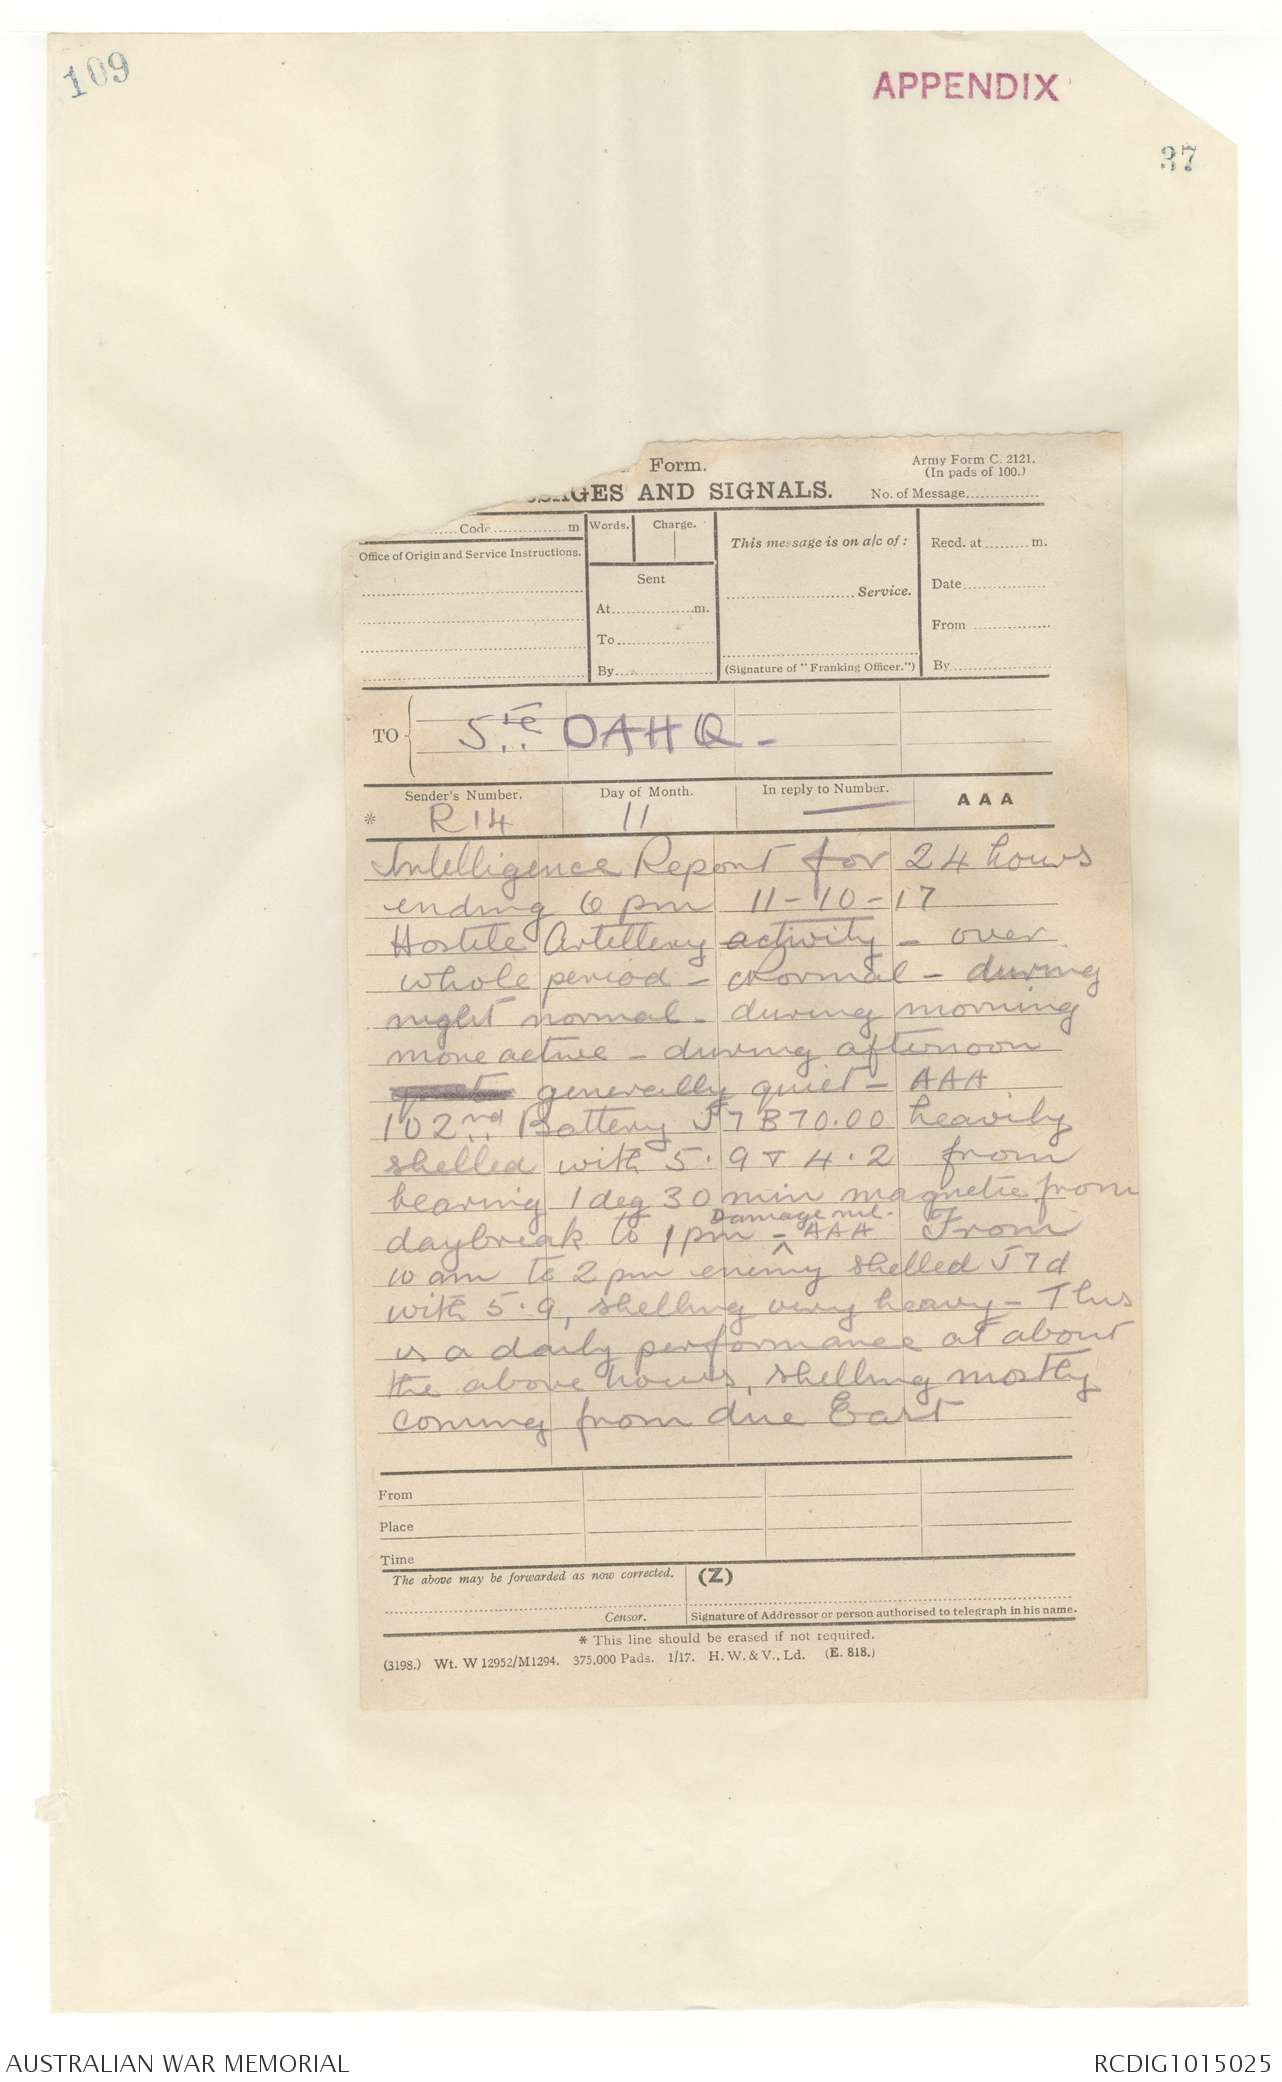 109
APPENDIX
37
Form.
Army Form C. 2121.
(In pads of 100.)
SSAGES AND SIGNALS.
No. of Message
Code m
Words.
Charge.
This message is on a/c of:
Recd. at m.
Office of Origin and Service Instructions.
Sent
Service.
Date
At m.
To
From
By
(Signature of "Franking Officer.")
By
TO
Sender's Number.
Day of Month.
In reply to Number.
AAA
* R14
11
Intelligence Report for 24 hours
ending 6 pm 11-10-17
Hostile Artillery activity - over
whole period - Normal - during
night normal - during morning
more active - during afternoon
generally quiet - AAA
102nd Battery J7B70.00 heavily
shelled with 5.9 & 4.2 from
bearing 1 deg 30 min magnetic from
Damage nil.
daybreak to 1pm - AAA From
10 am to 2 pm enemy shelled J7d
with 5.9, shelling very heavy - This
is a daily performance at about
the above hours, shelling mostly
coming from due East
From
Place
Time
The above may be forwarded as now corrected.
(Z)
Censor.
Signature of Addressor or person authorised to telegraph in his name.
* This line should be erased if not required.
(3198.) Wt. W 12952/M1294. 375,000 Pads. 1/17. H. W. & V., Ld. (E. 818.)
AUSTRALIAN WAR MEMORIAL
RCDIG1015025